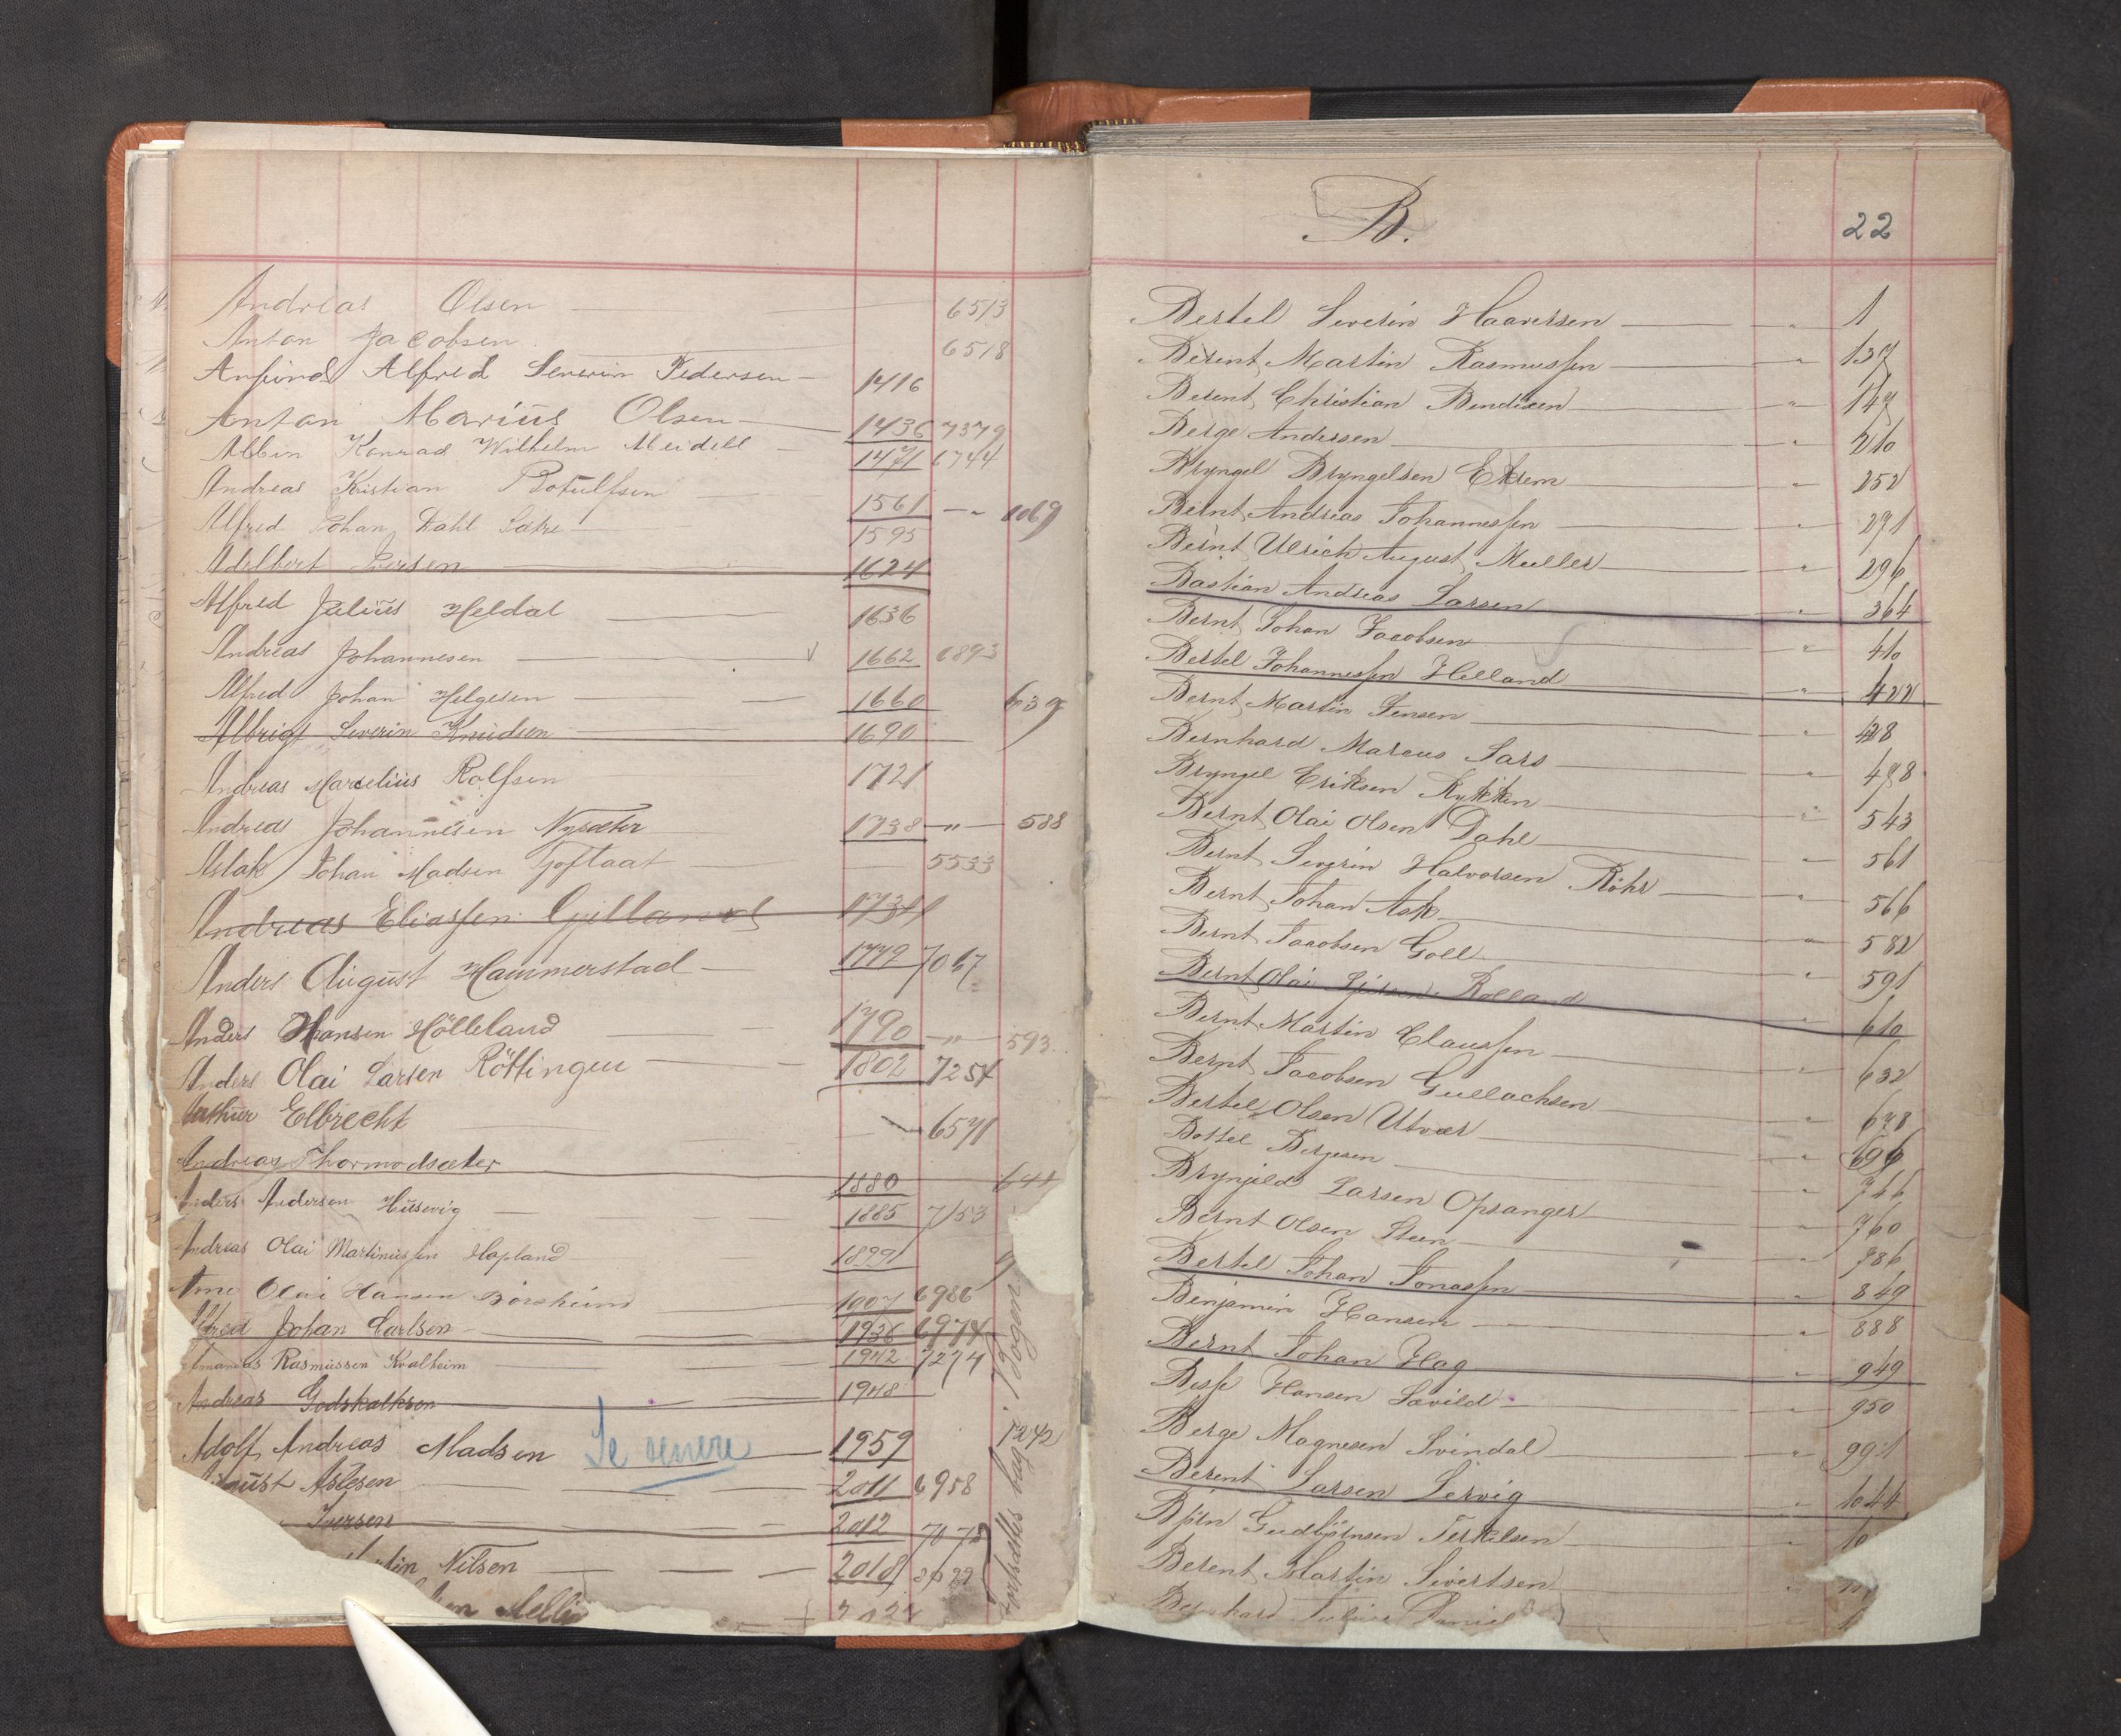 Andreas Olsen — 6513
Anton Jacobsen — 6518
Anfind Alfred Severin Pedersen — 1416
Anton Marius Olsen — 1436 7379
Albin Konrad Wilhelm Meidell — 1471 6744
Andreas Kristian Botulfsen — 1561 — " 1069
Alfred Johan Dahl Sætre — 1595
Adelbert Iversen — 1624
Alfred Julius Heldal — 1636
Andreas Johannesen — 1662 6893
Alfred Johan Helgesen — 1660 639
Albrigt Severin Knudsen — 1690
Andreas Marselius Rolfsen 1721
Andreas Johannesen Nysæter 1738 — " — 588
Aslak Johan Madsen Toftaat — 5533
Andreas Eliassen Gjilland 1734
Anders August Hammerstad — 1772 7067
Anders Hansen Hölleland — 1790 — " — 593
Anders Olai Larsen Röttingen — 1802 7254
Arthur Elbrecht — 6571
Andreas Thormodsæter 1880 644
Anders Andersen Husevig — 1885 7153
Andreas Olai Martinussen Hopland 1899
Olai Hansen Börsheim — 1907 6986
Alfred Johan Carlsen — 1936 6974
Rasmussen Kvalheim — 1942 7274
Andreas Godskalksen 1948
Adolf Andreas Madsen Se senere 1959 1242
August Aslesen — 2011 6958
Iversen — 2012 7075
Nilsen — 2018
Fortsættes bag i Bogen
B.
22
Bertel Severin Haaversen — " 1
Berent Martin Rasmussen — " 137
Berent Christian Bendixen — " 147
Berge Andersen — " 210
Bryngel Bryngelsen Ekrem — " 252
Bernt Andreas Johannessen — " 291
Bernt Ulrich August Muller — " 296
Bastian Andreas Larsen — " 364
Bernt Johan Jacobsen — " 410
Bertel Johannessen Helland — " 422
Bernt Martin Jensen — " 428
Bernhard Marcus Lars — " 478
Bryngel Eriksen Rykken — " 543
Bernt Olai Olsen Dahl — " 561
Bernt Severin Halvorsen Röhr — " 566
Bernt Johan Ask — " 582
Bernt Jacobsen Goll — " 591
Bernt Olai Rolland " 610
Bernt Martin Claussen — " 632
Bernt Jacobsen Gullachsen — " 678
Bertel Olsen Utvær — " 696
Bottel Birgesen — " 746
Brynjild Larsen Opsanger — " 760
Bernt Olsen Steen — " 786
Bertel Johan Jonassen — " 849
Benjamin Hansen — " 888
Bernt Johan Hag " 949
Besse Hansen Løvild — " 950
Berge Magnesen Svindal — " 991
Berent Larsen Lervig " 1044
Björn Gudbjörnsen Terkilsen — "
Berent Martin Sivertsen — "
Bernhard Julius Daniel